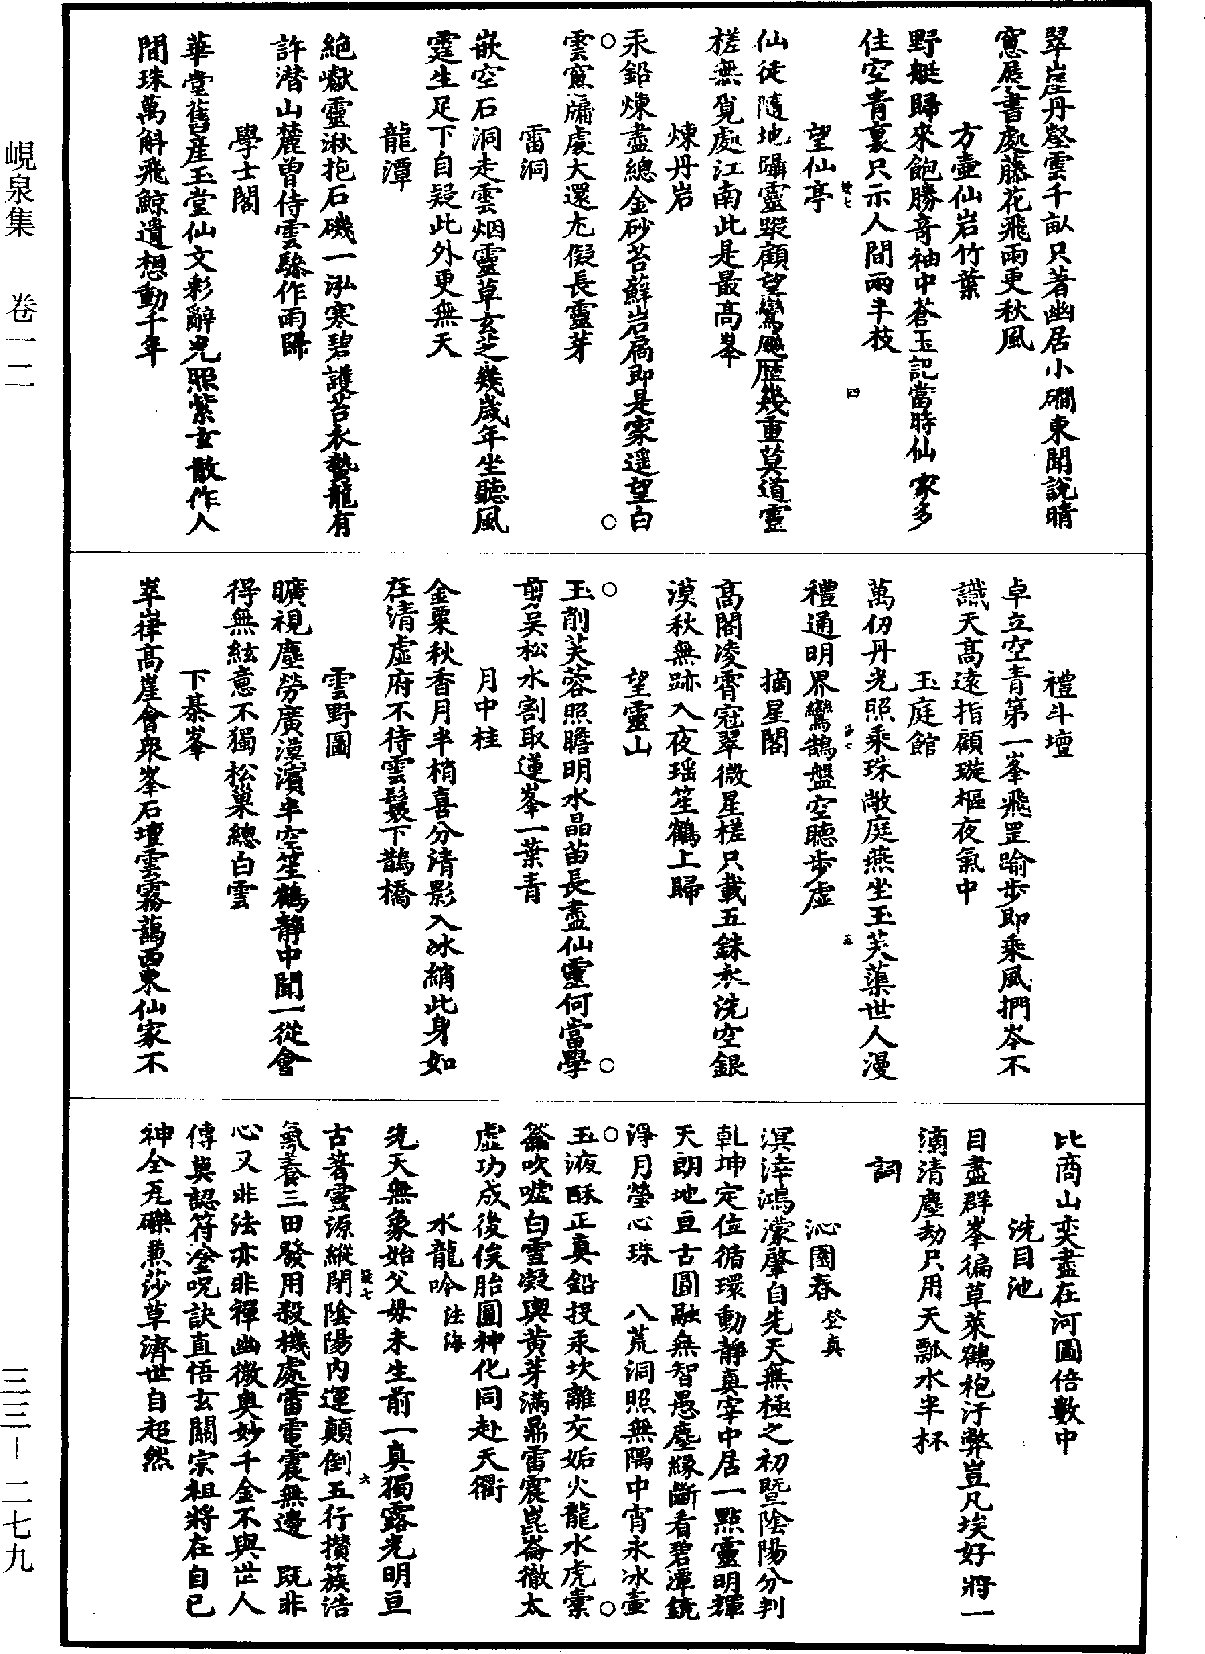 翠崖丹壑雲千畝只著幽居小礀東聞說晴
窻展書處藤花飛雨更秋風
方壺仙岩竹葉
野艇歸來飽勝奇袖中蒼玉記當時仙家多
住空青裏只示人間兩半枝
望仙亭
仙徒隨地躡靈蹤顧望鸞飈歷幾重莫道靈
槎無覓處江南此是最高峯
煉丹岩
汞鉛煉盡總金砂苔蘚岩扃即是家遥望白
雲窻牖處大還尤儗長靈芽
雷洞
嵌空石洞走雲烟靈草玄芝幾歲年坐聽風
霆生足下自疑此外更無天
龍潭
絶巘靈湫抱石磯一泓寒碧護苔衣蟄龍有
許潜山麓曽侍雲驂作雨歸
學士閣
華堂舊産玉堂仙文彩辭光照紫玄散作人
間珠萬斛飛鯨遺想動千年
禮斗壇
卓立空青第一峯飛罡踰步即乘風捫岑不
識天高遠指顧璇樞夜氣中
玉庭館
萬仞丹光照乘珠敞庭燕坐玉芙蕖世人漫
禮通明界鸞鵠盤空聽步虛
摘星閣
高閣凌霄冠翠微星槎只載五銖衣洗空銀
漠秋無跡入夜瑶笙鶴上歸
望靈山
玉削芙蓉照瞻明水晶苗長盡仙靈何當學
剪吴松水割取蓮峯一葉青
月中桂
金粟秋香月半梢喜分清影入冰綃此身如
在清虛府不待雲鬟下鵲橋
雲野圖
曠視塵勞廣漠濱半空笙鶴静中聞一從會
得無絃意不獨松巢總白雲
下棊峯
崒嵂高崖會衆峯石壇雲霧藹西東仙家不
比商山奕盡在河圖倍數中
洗目池
目盡群峯徧草萊鶴袍汙弊豈凡埃好將一
滴清塵劫只用天瓢水半杯
詞
沁園春 登真
溟涬鴻濛肇自先天無極之初曁陰陽分判
乹坤定位循環動静真宰中居一點靈明輝
天朗地亘古圓融無智愚塵緣斷看碧潭皖
淨月瑩心珠 八荒洞照無隅中宵永冰壺
玉液酥正真鉛投汞坎離交姤火龍水虎槖
籥吹噓白雪凝輿黄芽滿鼎雷震崑崙徹太
虛功成後俟胎圓神化同赴天衢
水龍吟 法海
先天無象始父母未生前一真獨露光明亘
古著靈源縱閉陰陽内運顛倒五行攅簇浩
氣養三田發用殺機處雷電震無邊 既非
心又非法亦非禪幽微奥妙千金不與世人
傳莫認符塗呪訣直悟玄關宗祖將在自已
神全瓦礫𤋱莎草濟世自超然
峴泉集 卷一二
三三—二七九